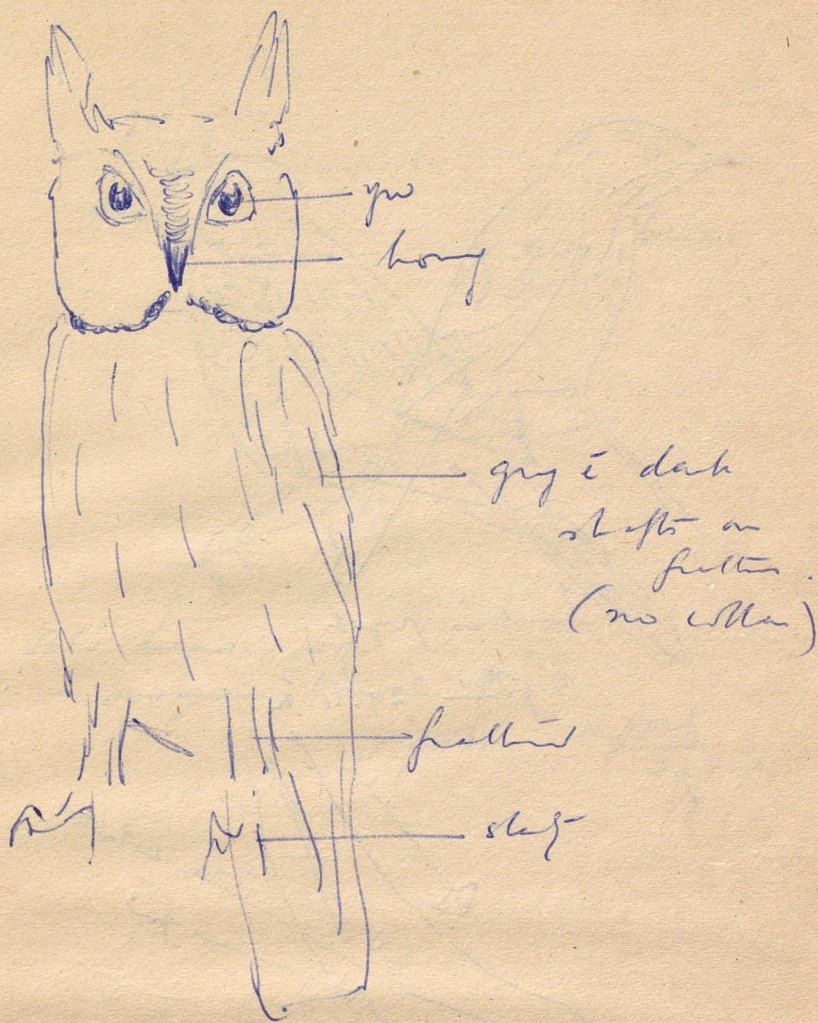 yw
horny
grey c̄ dark
shafts on
feathers.
(no collar)
feathered
slaty